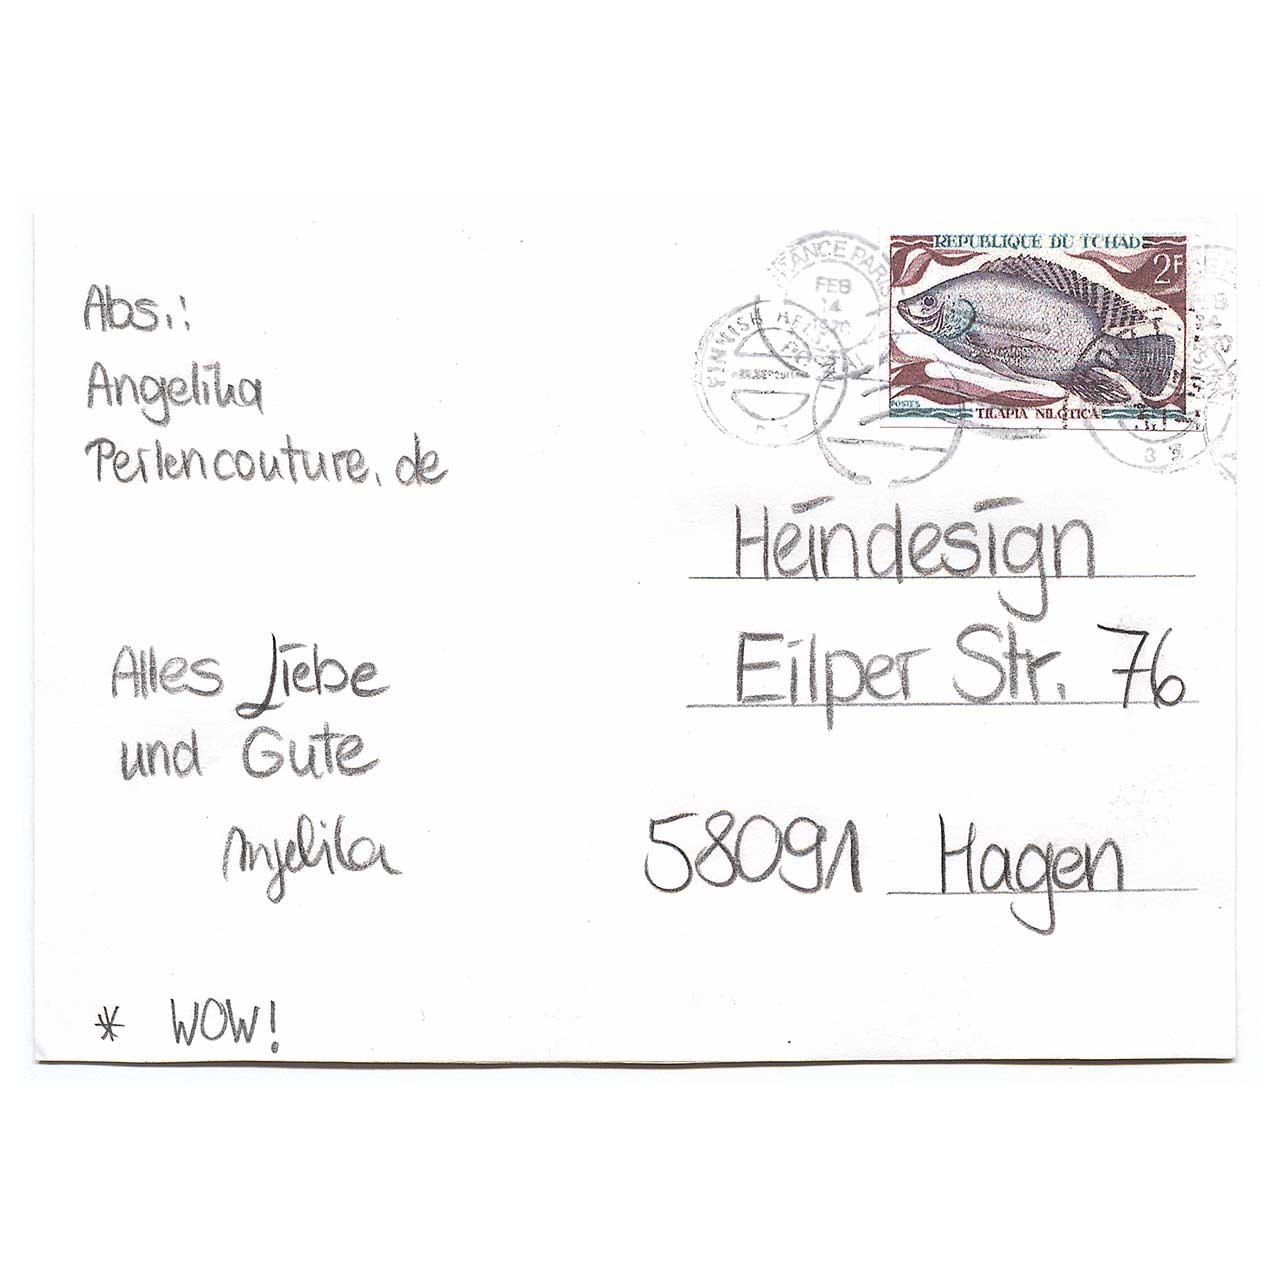 Abs.:
Angelika
Perlencouture.de
Alles Liebe
und Gute
Angelika
* WOW!
REPUBLIQUE DU TCHAD
2F
POSTES
TILAPIA NILOTICA
FEB
14
Heindesign
Eilper Str. 76
58091 Hagen